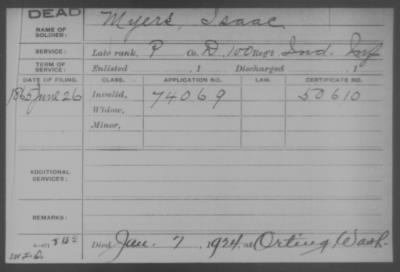 DEAD
NAME OF SOLDIER: Myers, Isaac
SERVICE: Late rank, P Co. D, 100 Reg't Ind. Inf
TERM OF SERVICE: Enlisted , 1 Discharged , 1
DATE OF FILING. CLASS. APPLICATION NO. LAW. CERTIFICATE NO.
1865 June 26 Invalid, 74069 50610
Widow,
Minor,
ADDITIONAL SERVICES:
REMARKS:
Died Jan. 7, 1924, at Orting, Wash.